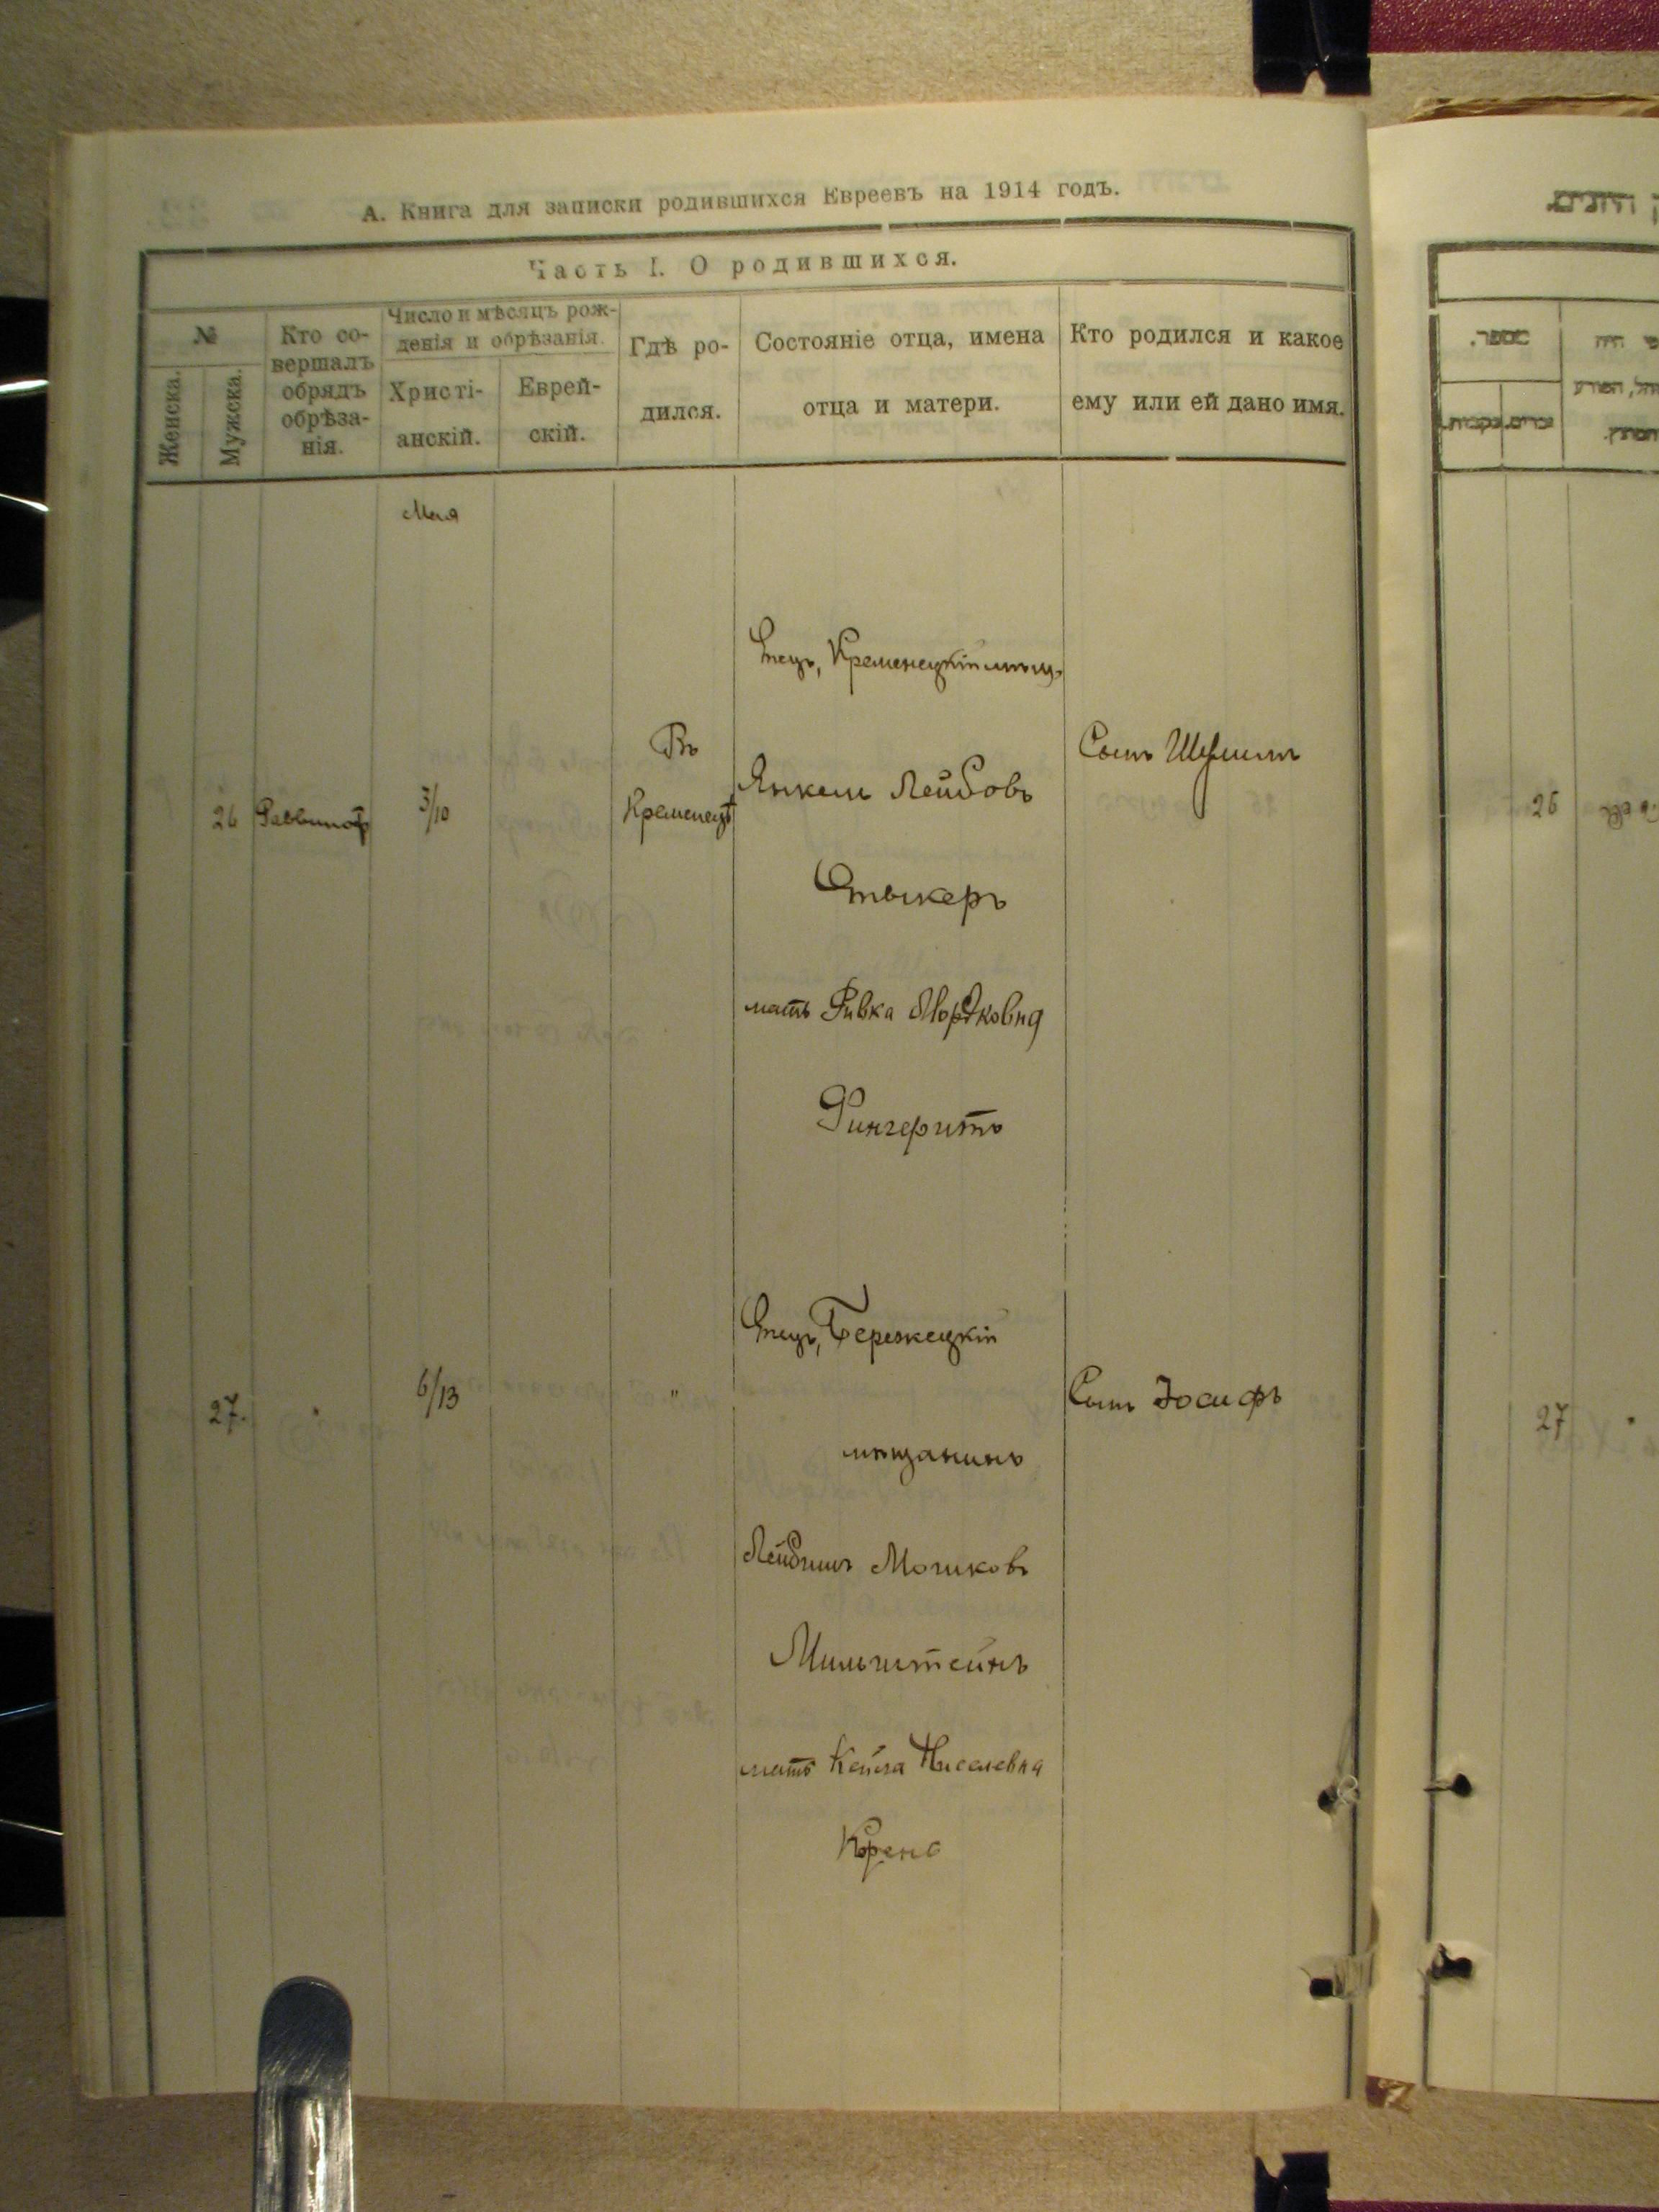 А. Книга для записки родившихся Евреевъ на 1914 годъ.
Часть I. О родившихся.
№
Женска.
Мужска.
Кто со-
вершалъ
обрядъ
обрѣза-
нія.
Число и мѣсяцъ рож-
денія и обрѣзанія.
Христі-
анскій.
Еврей-
скій.
Гдѣ ро-
дился.
Состояніе отца, имена
отца и матери.
Кто родился и какое
ему или ей дано имя.
Мая
26
3/10
Въ
Кременецѣ
Отецъ, Кременецкій мѣщ.
Янкель Лейбовъ
Стыкеръ
мать Ривка Мордковна
Фингерштъ
Сынъ
27.
6/13
"
Отецъ, Бережецкій
мѣщанинъ
Лейбишъ Мошковъ
Мильштейнъ
мать Кейла Ниселевна
Сынъ Іосифъ
מספר.
זכרים.
נקבות.
26
27